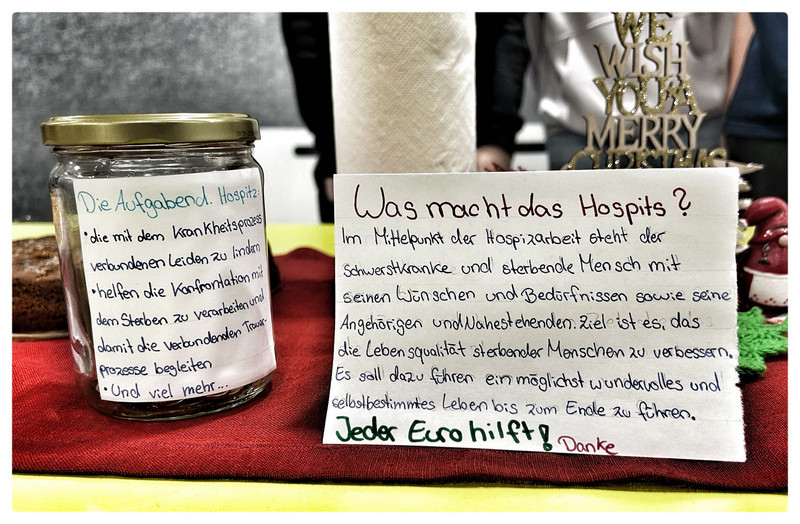 WE
WISH
YOU A
MERRY
CHRISTMAS
Die Aufgaben d. Hospitz:
• die mit dem Krankheitsprozess
verbundenen Leiden zu lindern
• helfen die Konfrontation mit
dem Sterben zu verarbeiten und
damit die verbundenden Trauer-
prozesse begleiten
• Und viel mehr...
Was macht das Hospits?
Im Mittelpunkt der Hospizarbeit steht der
schwerstkranke und sterbende Mensch mit
seinen Wünschen und Bedürfnissen sowie seine
Angehörigen und Nahestehenden. Ziel ist es, das
die Lebensqualität sterbender Menschen zu verbessern.
Es soll dazu führen ein möglichst wundervolles und
selbstbestimmtes Leben bis zum Ende zu führen.
Jeder Euro hilft! Danke